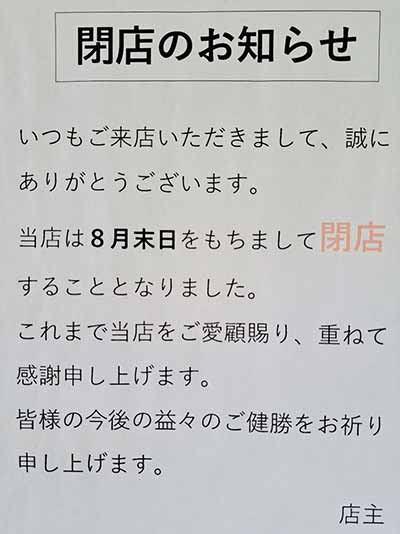 閉店のお知らせ
いつもご来店いただきまして、誠に
ありがとうございます。
当店は８月末日をもちまして閉店
することとなりました。
これまで当店をご愛顧賜り、重ねて
感謝申し上げます。
皆様の今後の益々のご健勝をお祈り
申し上げます。
店主